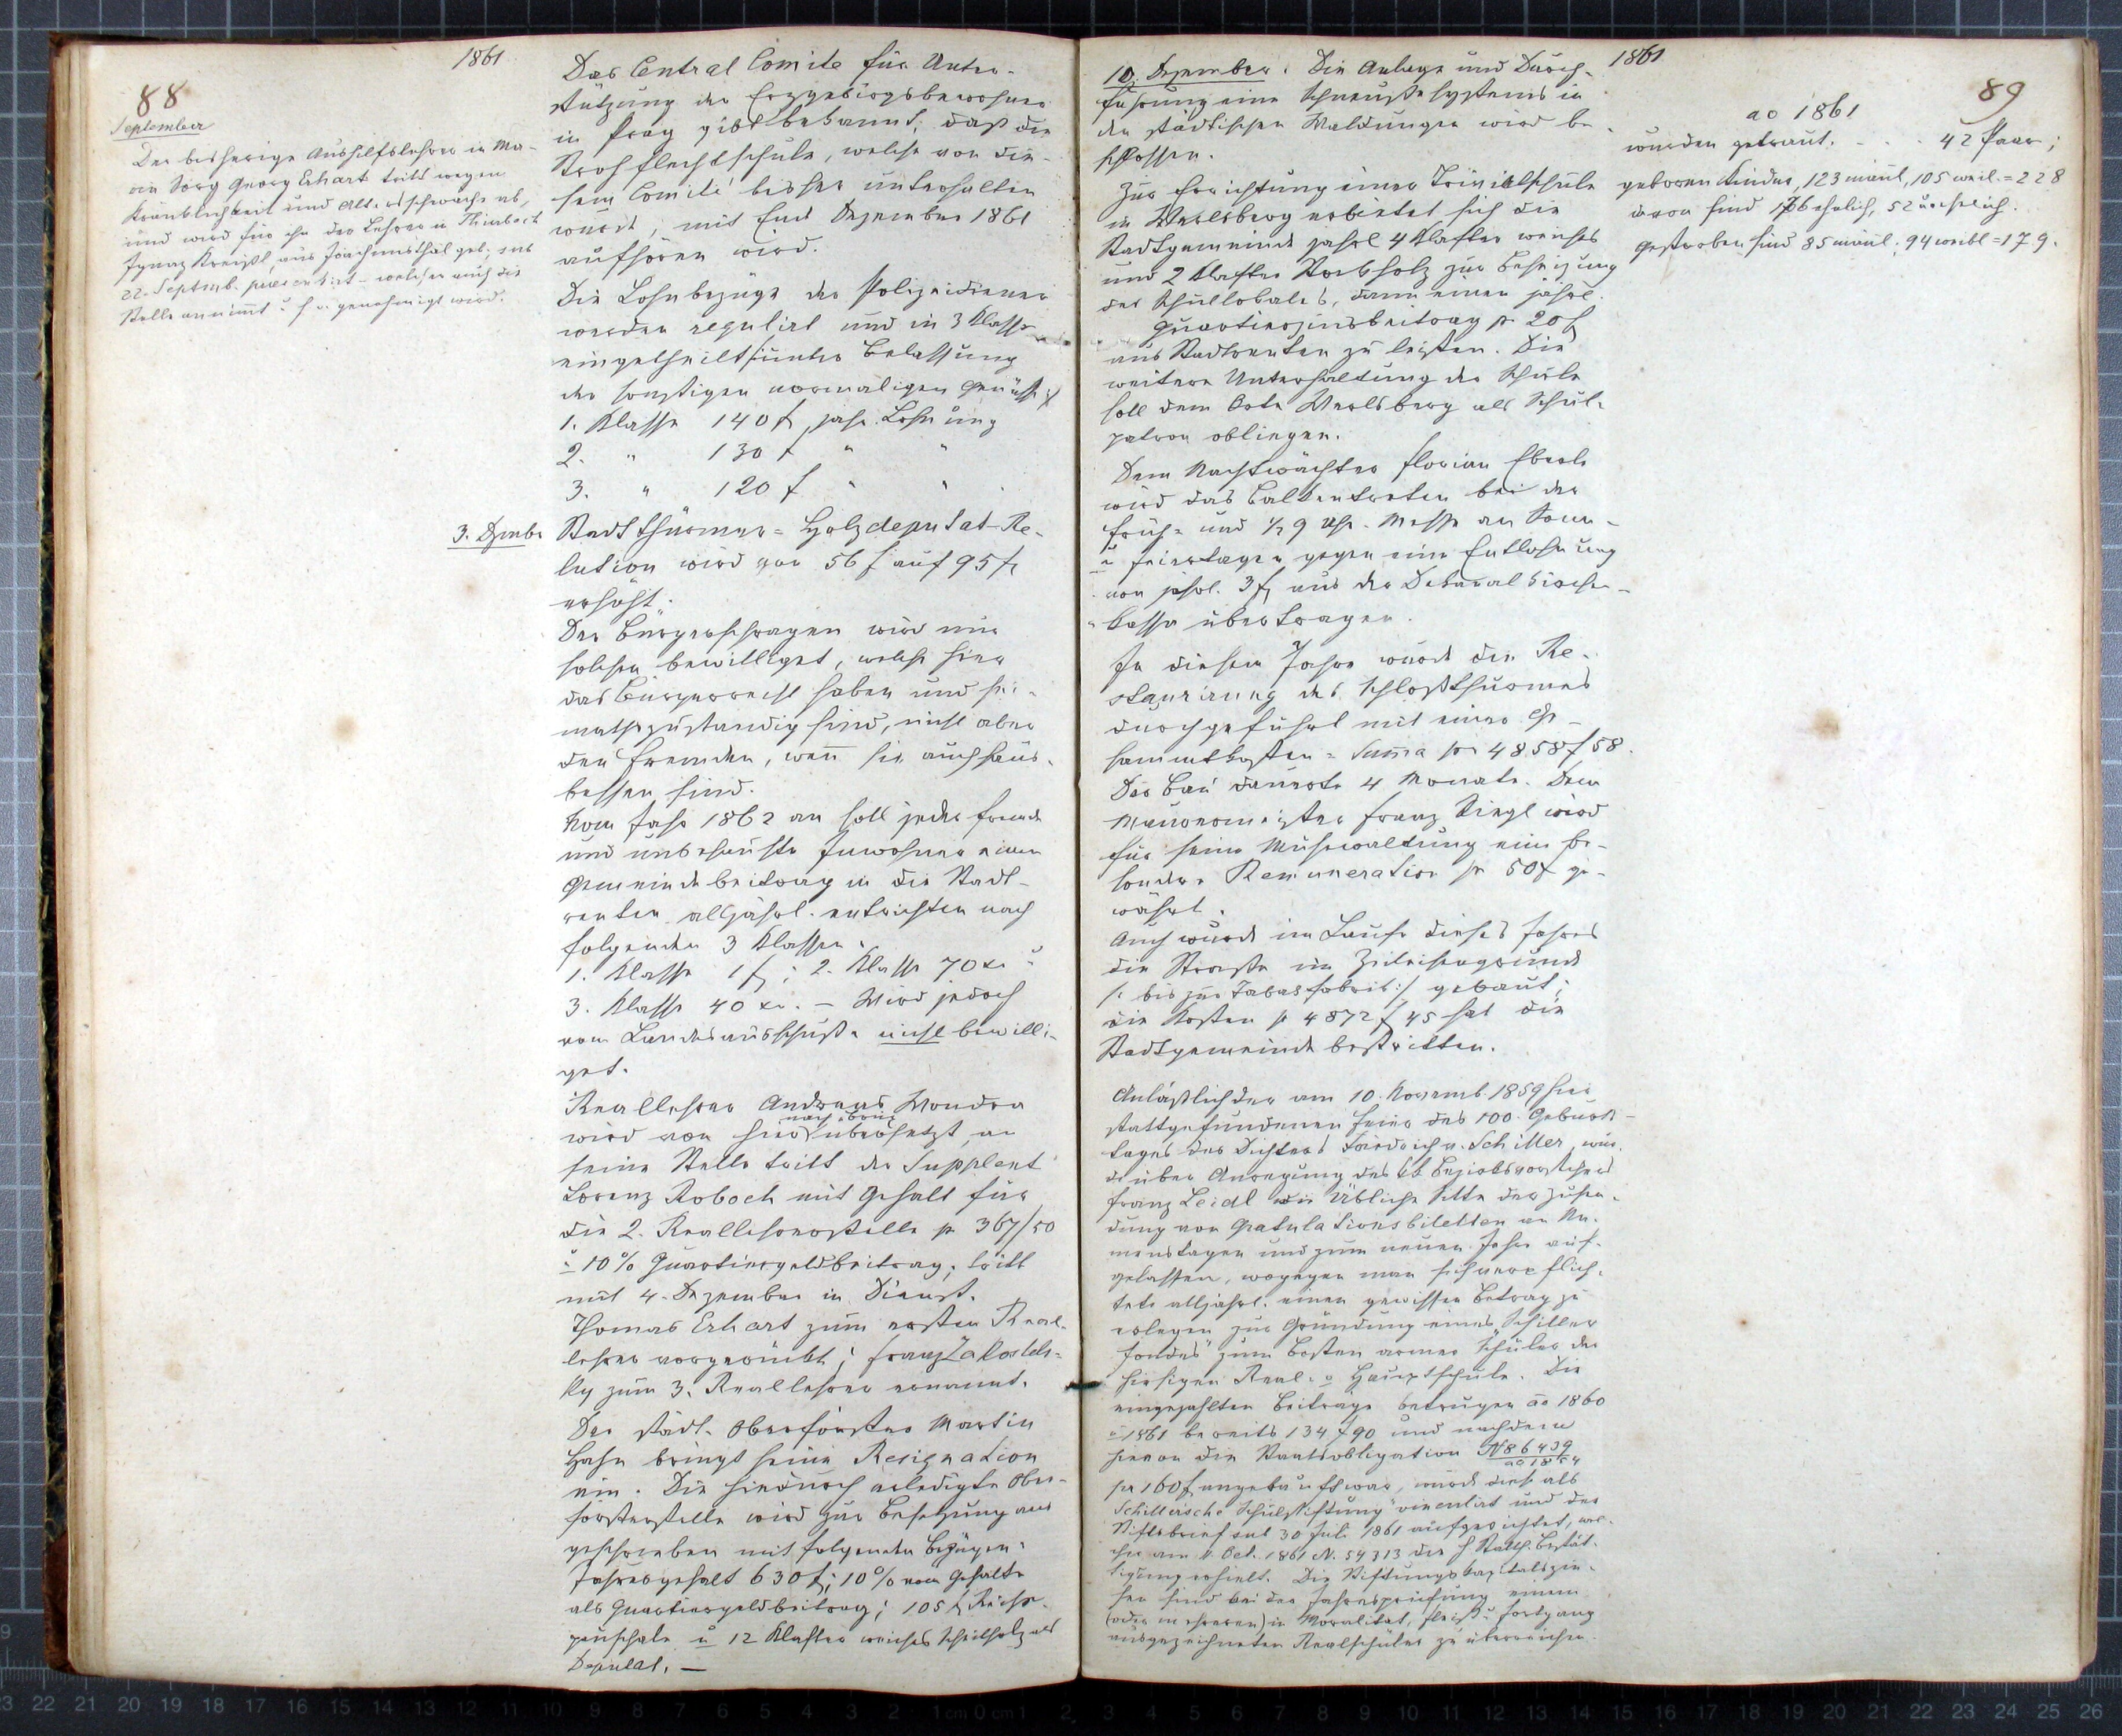 88
1861
September
Der bisherige Aushilfslehrer in Ma-
ria Sorg Georg Erhart tritt wegen
Kränklichkeit und Altersschwäche ab,
und wird für ihn der Lehrer in Thimbach
Ignaz Kreißl, aus Joachimsthal geb; sub
22. Septemb. praesentirt – welcher auch die
Stelle annimmt u. h. o. genehmigt wird.
Das Central Comite für Unter-
stützung der Erzgebirgsbewohner
in Prag gibt bekannt, daß die
Strohflechtschule, welche von die-
sem Comité bisher unterhalten
wurde, mit Ende Dezember 1861
aufhören wird.
Die Lohnbezüge der Polizeidiener
werden regulirt und in 3 Klassen
eingetheilt /: unter Belassung
der sonstigen normäligen Genüsse :/
1. Klasse 140 f jähr. Lohnung
2. " 130 f " "
3. " 120 f " "
3. Dzembr
Stadtthürmer-Holzdeputat-Re-
lution wird von 56 f auf 95 f
erhöht.
Der Bürgerschragen wird nur
solchen bewilliget, welche hier
das Bürgerrecht haben und hei-
mathszuständig sind, nicht aber
den Fremden, wenn sie auch haus-
bessen sind.
Vom Jahr 1862 an soll jeder fremde
und unbehauste Inwohner einen
Gemeindebeitrag in die Stadt-
renten alljährl. entrichten nach
folgenden 3 Klassen.
1. Klasse 1 f; 2. Klasse 70 xr u
3. Klasse 40 xr. – Wird jedoch
vom Landesausschuße nicht bewilli-
get.
Reallehrer Andreas Wondra
nach Brüx
wird von hier übersetzt, an
seine Stelle tritt der Supplent
Lorenz Roboch mit Gehalt für
die 2. Reallehrerstelle pr 367/50
u 10% Quartiergeldbeitrag; tritt
mit 4. Dezember in Dienst.
Thomas Erhart zum ersten Real-
lehrer vorgerückt; Franz Zakostels-
ky zum 3. Reallehrer ernannt.
Der städt. Oberförster Martin
Hahn bringt seine Resignation
ein. Die hiedurch erledigte Ober-
försterstelle wird zur Besetzung aus
geschrieben mit folgenden Bezügen:
Jahresgehalt 630 f; 10% vom Gehalte
als Quartiergeldbeitrag; 105 f Reise-
pauschale u 12 Klafter weiches Scheitholz als
Deputat. –
1861
89
10. Dezember. Die Anlage und Durch-
führung eines Schneußesystems in
den städtischen Waldungen wird be-
schlossen.
Zur Errichtung einer Trivialschule
in Werlsberg erbietet sich die
Stadtgemeinde jährl 4 Klafter weiches
und 2 Klafter Stockholz zur Beheizung
des Schullokales, dann einen jährl.
Quartierzinsbeitrag pr 20 f
aus Stadtrenten zu leisten. Die
weitere Unterhaltung der Schule
soll dem Orte Werlsberg als Schul-
patron obliegen.
Dem Nachtwächter Florian Eberl
wird das Balkentreten bei der
Früh- und ½ 9 Uhr-Messe an Sonn-
u Feiertagen gegen eine Entlohnung
von jährl. 3 f aus der Dekanalkirchen-
kassa übertragen.
In diesem Jahre wurde die Re-
staurirung des Schloßthurmes
durchgeführt mit einer Ge-
sammtkosten-Suma pr 4858 f 58.
Der Bau dauerte 4 Monate. Dem
Maurermeister Franz Siegl wird
für seine Mühewaltung eine be-
sondere Remuneration pr 50 f ge-
währt.
Auch wurde im Laufe dieses Jahres
die Straße im Zeileisengrund
/: bis zur Tabakfabrik :/ gebaut;
die Kosten pr 4872 f 45 hat die
Stadtgemeinde bestritten.
Anläßlich der am 10. Novemb. 1859 hier
stattgefundenen Feier des 100. Geburts-
tages des Dichters Friedrich v. Schiller, wur-
de über Anregung des kk Bezirksvorstehers
Franz Leidl die Übliche Sitte der Zusen-
dung von Gratulationsbiletten an Na-
menstagen und zum neuen Jahr auf-
gelassen, wogegen man sich verpflich-
tete alljährl. einen gewissen Betrag zu
erlegen zur Gründung eines "Schiller
fondes" zum Besten armer Schüler der
hiesigen Real- u Hauptschule. Die
eingezahlten Beiträge betrugen ao 1860
u 1861 bereits 134 f 90 und nachdem
hievon die Staatsobligation N 86439
pr 100 f angekauft war, wurde diese als
Schillersche Schulstiftung" vinculirt und der
Stiftsbrief sub 30 Juli 1861 aufgerichtet, wel-
cher am 11. Oct. 1861 N. 54313 die h Statth. Bestät-
tigung erhielt. Die Stiftungskapitalszin-
sen sind bei der Jahresprüfung einem
(oder mehreren) in Moralität, Fleiß u Fortgang
ausgezeichneten Realschüler zu überreichen.
ao 1861
wurden getraut. . . . 42 Paar;
geboren Kinder, 123 männl, 105 weil. = 228
davon sind 176 ehelich, 52 unehelich.
Gestorben sind 85 männl; 94 weibl = 179.